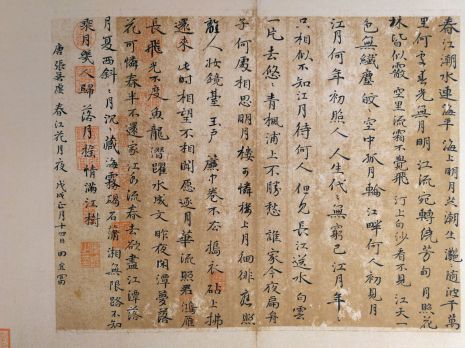 春江潮水連海平海上明月共潮生灩〻隨波千萬
里何處春江無月明江流宛轉繞芳甸月照花
林皆似霰空里流霜不覺飛汀上白沙看不見江天一
色無纖塵皎〻空中孤月輪江畔何人初見月
江月何年初照人人生代〻無窮已江月年〻
只相似不知江月待何人但見長江送水白雲
一片去悠〻青楓浦上不勝愁誰家今夜扁舟
子何處相思明月樓可憐樓上月徘徊應照
離人妝鏡臺玉戶簾中卷不去搗衣砧上拂
還來此時相望不相聞願逐月華流照君鴻雁
長飛光不度魚龍潛躍水成文昨夜閑潭夢落
花可憐春半不還家江水流春去欲盡江潭落
月复西斜〻月沉〻藏海霧碣石瀟湘無限路不知
乘月幾人歸落月搖情滿江樹
唐張若虛春江花月夜戊戌正月十四日田